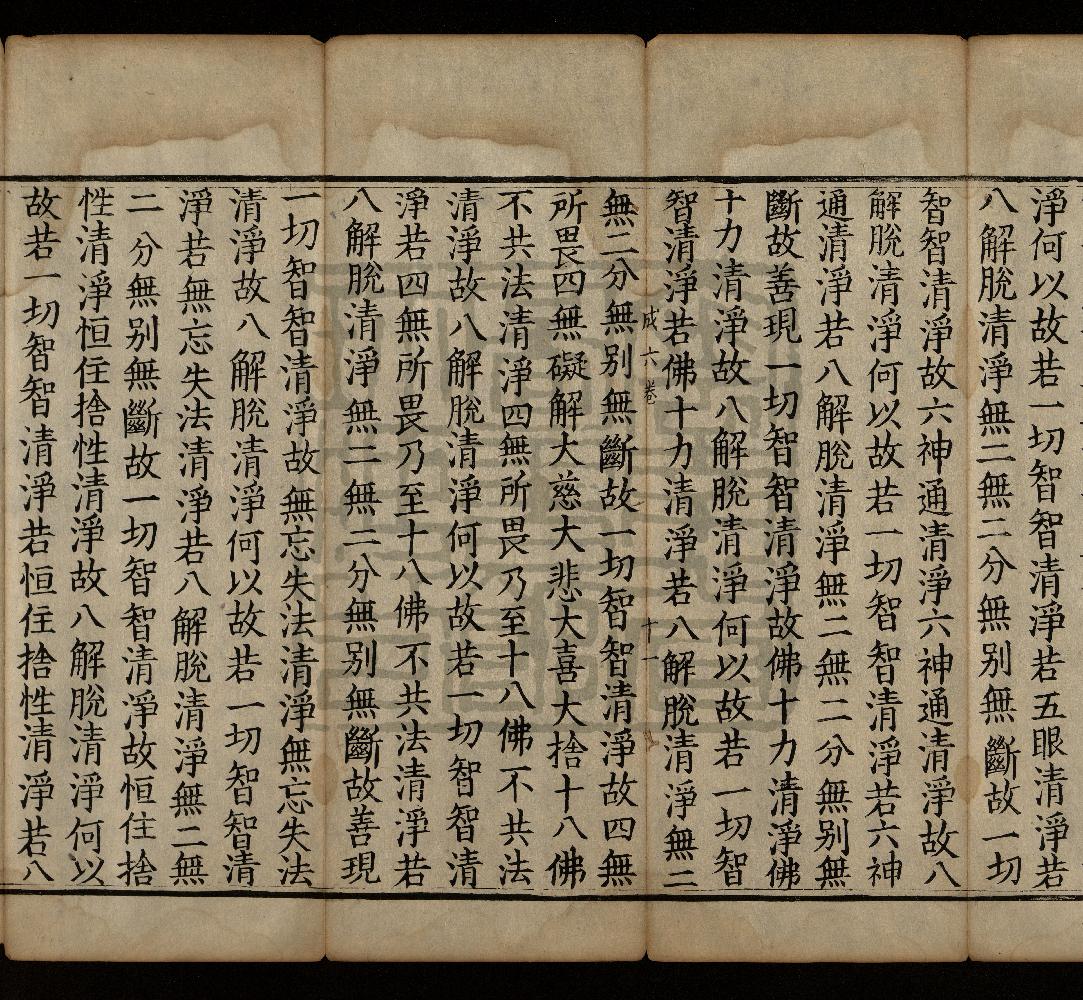 淨何以故若一切智智清淨若五眼清淨若
八解脫清淨無二無二分無別無斷故一切
智智清淨故六神通清淨六神通清淨故八
解脫清淨何以故若一切智智清淨若六神
通清淨若八解脫清淨無二無二分無別無
斷故善現一切智智清淨故佛十力清淨佛
十力清淨故八解脫清淨何以故若一切智
智清淨若佛十力清淨若八解脫清淨無二
成六卷 十一
無二分無別無斷故一切智智清淨故四無
所畏四無礙解大慈大悲大喜大捨十八佛
不共法清淨四無所畏乃至十八佛不共法
清淨故八解脫清淨何以故若一切智智清
淨若四無所畏乃至十八佛不共法清淨若
八解脫清淨無二無二分無別無斷故善現
一切智智清淨故無忘失法清淨無忘失法
清淨故八解脫清淨何以故若一切智智清
淨若無忘失法清淨若八解脫清淨無二無
二分無別無斷故一切智智清淨故恒住捨
性清淨恒住捨性清淨故八解脫清淨何以
故若一切智智清淨若恒住捨性清淨若八